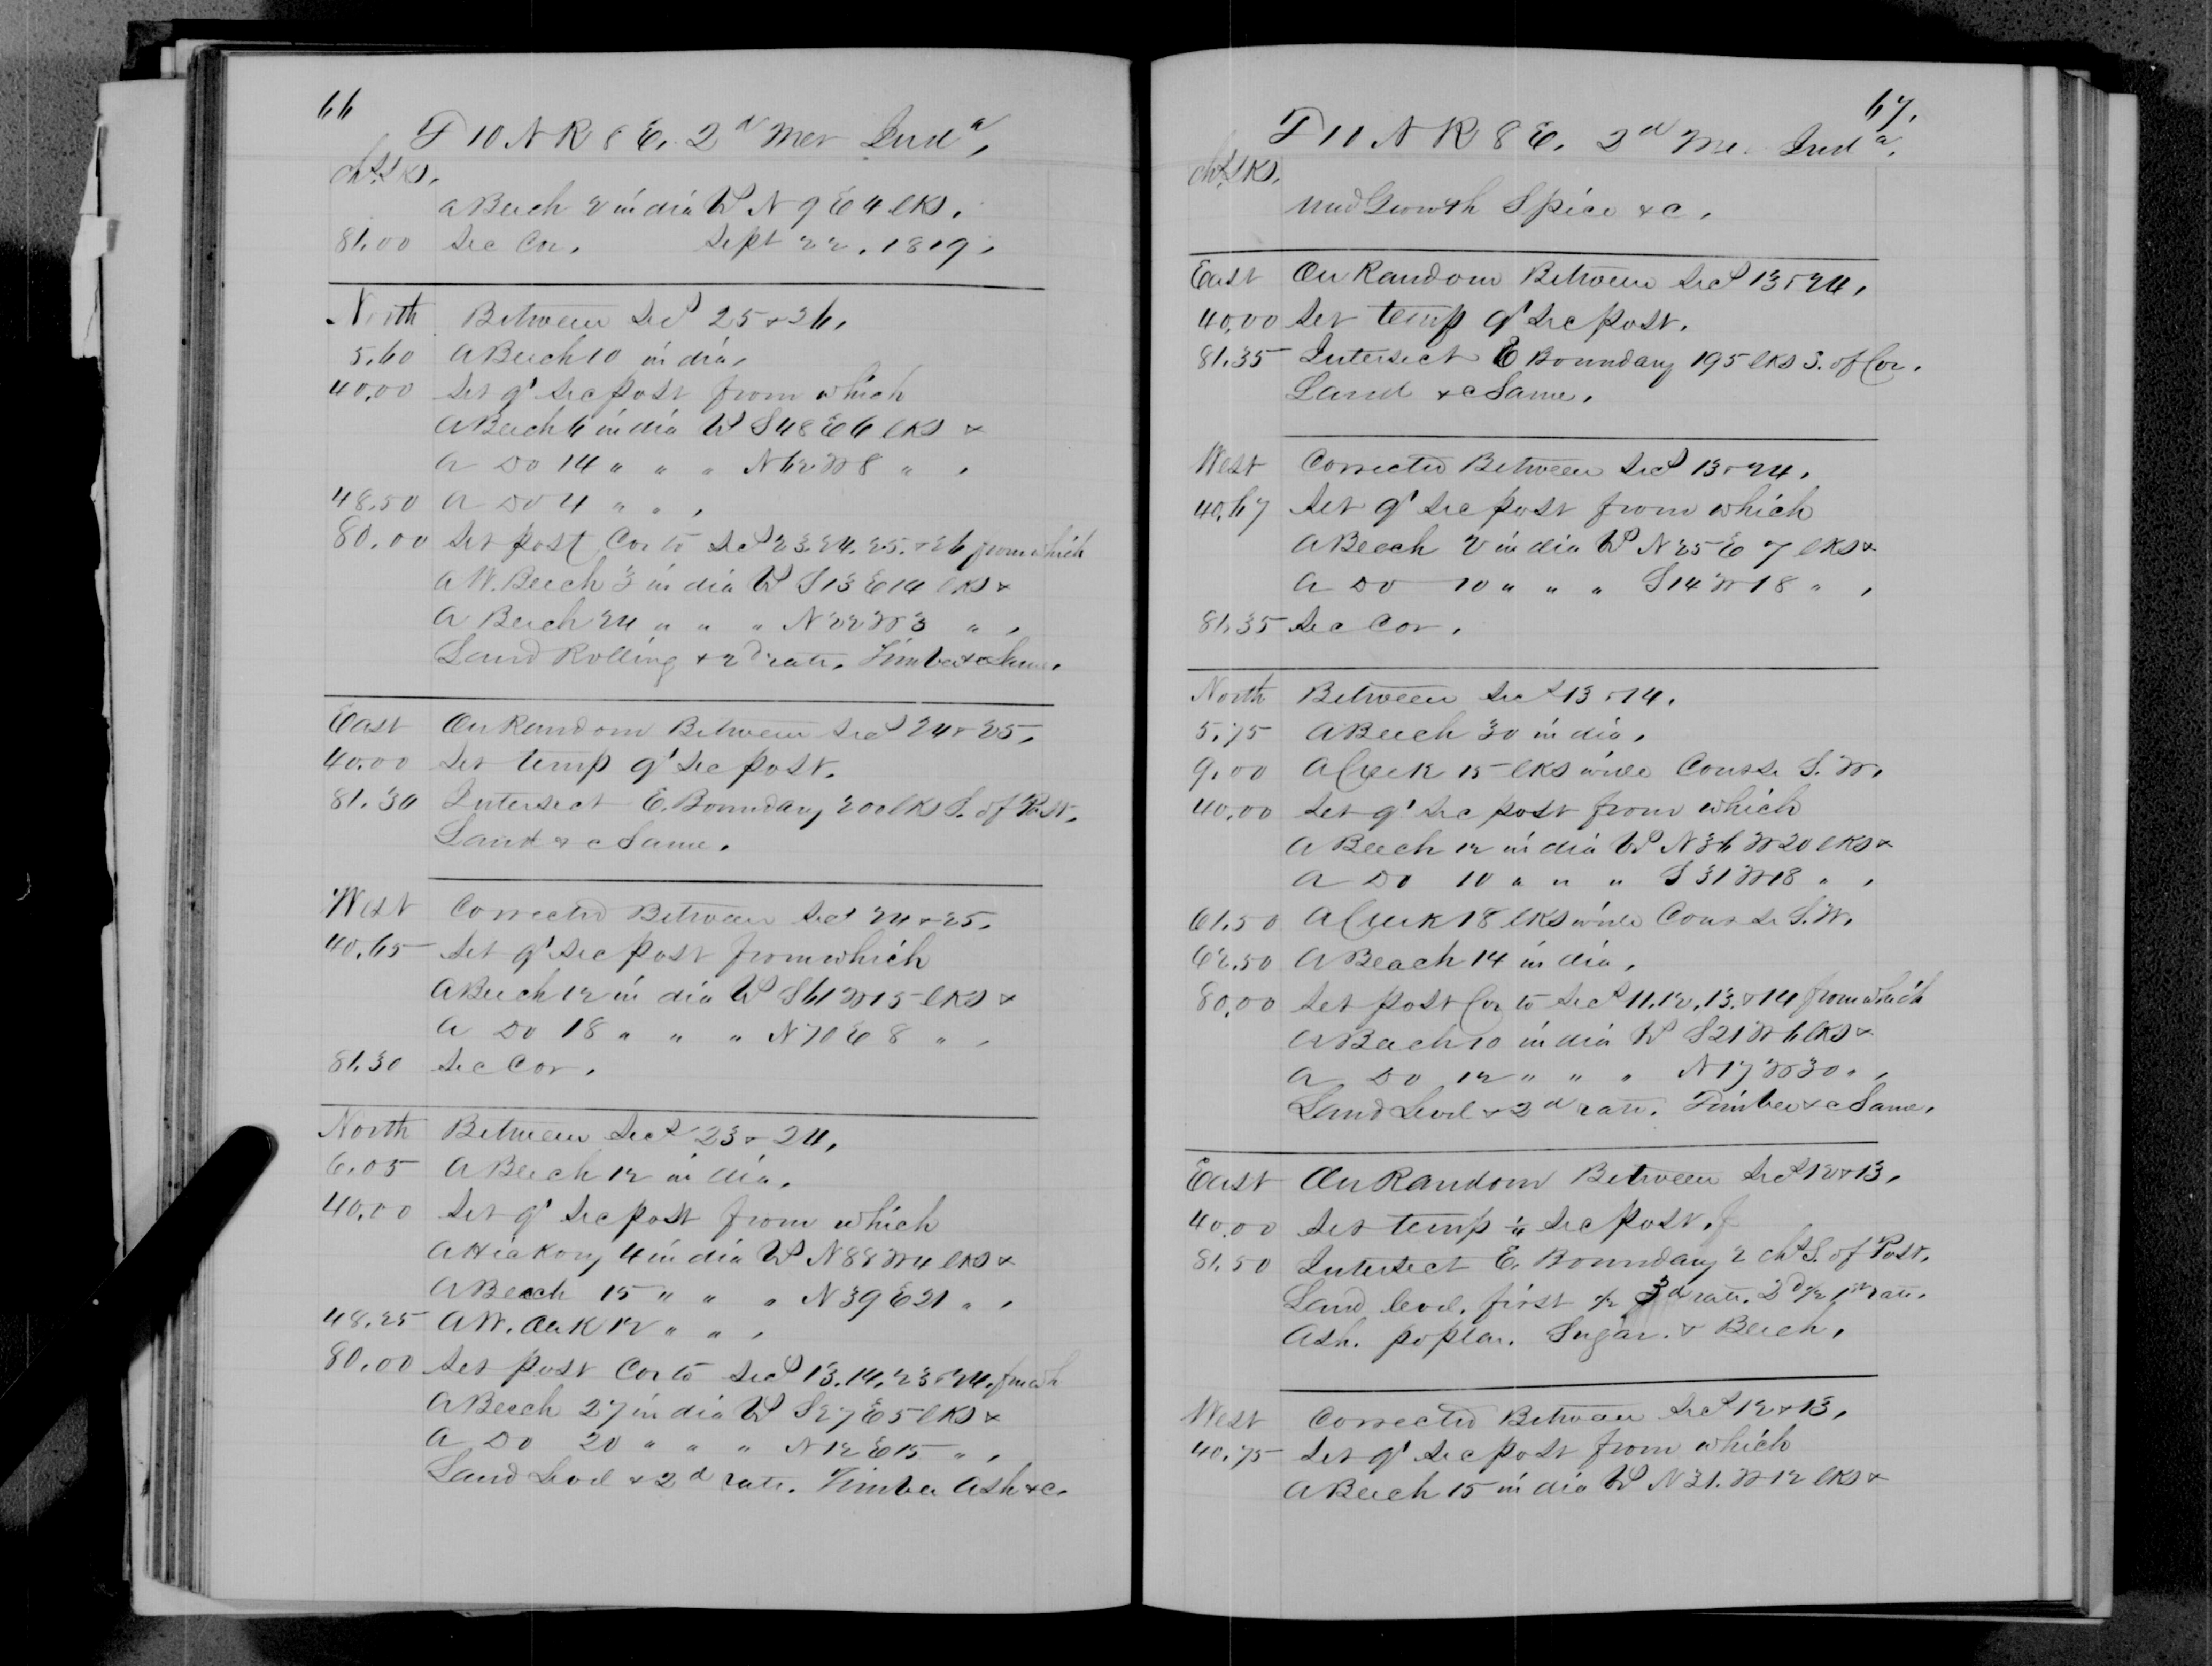 66
T 10 N R 8 E. 2d Mer Inda.
chs. lks.
a Beech 2 in dia Ws N 9 E 4 lks.
81.00 Sec Cor. Sept 22. 1819.
North Between Secs 25 & 26.
5.60 A Beech 10 in dia.
40.00 Set qr Sec post from which
A Beech 6 in dia Ws S 48 E 6 lks &
A Do 14 " " " N 62 W 8 " .
48.50 A Do 4 " " .
80.00 Set post Cor to Secs 23. 24. 25. & 26 from which
A W. Beech 3 in dia Ws S 13 E 14 lks &
A Beech 24 " " " N 22 W 3 " .
Land Rolling & 2d rate. Timber &c Same.
East On Random Between Secs 24 & 25.
40.00 Set temp qr Sec post.
81.30 Intersect E. Boundary 200 lks S. of Post.
Land &c Same.
West Corrected Between Secs 24 & 25.
40.65 Set qr Sec post from which
A Beech 12 in dia Ws S 61 W 15 lks &
A Do 18 " " " N 70 E 8 " .
81.30 Sec Cor.
North Between Secs 23 & 24.
6.05 A Beech 12 in dia.
40.00 Set qr Sec post from which
A Hickory 4 in dia Ws N 88 W 4 lks &
A Beech 15 " " " N 39 E 21 " .
48.25 A W. Oak 12 " " .
80.00 Set post Cor to Secs 13. 14. 23 & 24. from wh
A Beech 27 in dia Ws S 27 E 5 lks &
A Do 20 " " " N 12 E 15 " .
Land Level & 2d rate. Timber Ash &c.
67.
T 11 N R 8 E. 2d Me. Inda.
chs. lks.
und Growth Spice &c.
East On Random Between Secs 13 & 24.
40.00 Set temp qr Sec post.
81.35 Intersect E Boundary 195 lks S. of Cor.
Land &c Same.
West Corrected Between Secs 13 & 24.
40.67 Set qr Sec post from which
A Beech 2 in dia Ws N 25 E 7 lks &
A Do 10 " " " S 14 W 18 " .
81.35 Sec Cor.
North Between Secs 13 & 14.
5.75 A Beech 30 in dia.
9.00 A Creek 15 lks wide Course S. W.
40.00 Set qr Sec post from which
A Beech 12 in dia Ws N 36 W 20 lks &
A Do 10 " " " S 31 W 18 " .
61.50 A Creek 18 lks wide Course S. W.
62.50 A Beach 14 in dia.
80.00 Set post Cor to Secs 11. 12. 13. & 14 from which
A Beech 10 in dia Ws S 21 W 6 lks &
A Do 12 " " " N 17 W 30 " .
Land Level & 2d rate. Timber &c Same.
East On Random Between Secs 12 & 13.
40.00 Set temp 1/4 Sec post.
81.50 Intersect E. Boundary 2 chs S. of Post.
Land level. first 1/2 3d rate. 2d 1/2 1st rate.
Ash. poplar. Sugar. & Beech.
West Corrected Between Secs 12 & 13.
40.75 Set qr Sec post from which
A Beech 15 in dia Ws N 31. W 12 lks &